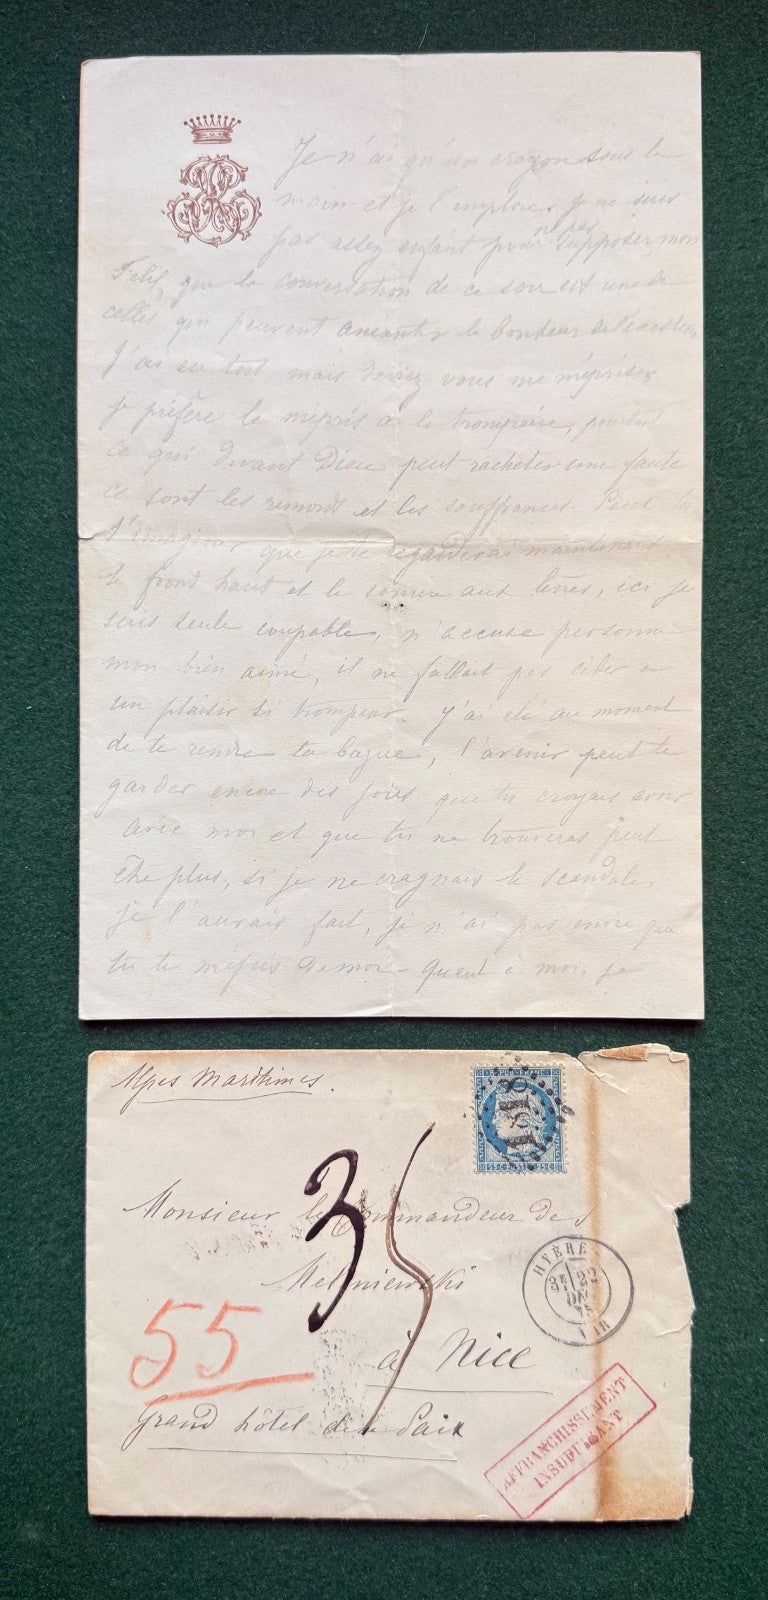 Je n'ai qu'un crayon sous la
main et je l'emploie. Je ne suis
pas assez enfant pour n'pas supposer, mon
que la conversation de ce soir est une de
celles qui peuvent anéantir le bonheur de l'existence
J'ai eu tort, mais devriez vous me mépriser
je préfère le mépris à la tromperie, pourtant
ce qui devant Dieu peut racheter une faute
ce sont les remords et les souffrances. Peux tu
t'imaginer que je te regarderai maintenant
le front haut et le sourire aux lèvres, ici je
suis seule coupable, n'accuse personne
mon bien aimé, il ne fallait pas céder à
un plaisir si trompeur. J'ai été au moment
de te rendre ta bague, l'avenir peut te
garder encore des joies que tu croyais avoir
avec moi et que tu ne trouveras peut
être plus, si je ne cragnais le scandale
je l'aurais fait, je n'ai pas envie que
tu te méfies de moi - Quant à moi, je
Alpes Maritimes.
REPUB FRANC
25 C POSTE 25 C
1818
Monsieur le Commandeur de
HYÈRES
3E 22
VAR
35
55
à Nice
Grand hôtel de la Paix
AFFRANCHISSEMENT
INSUFFISANT